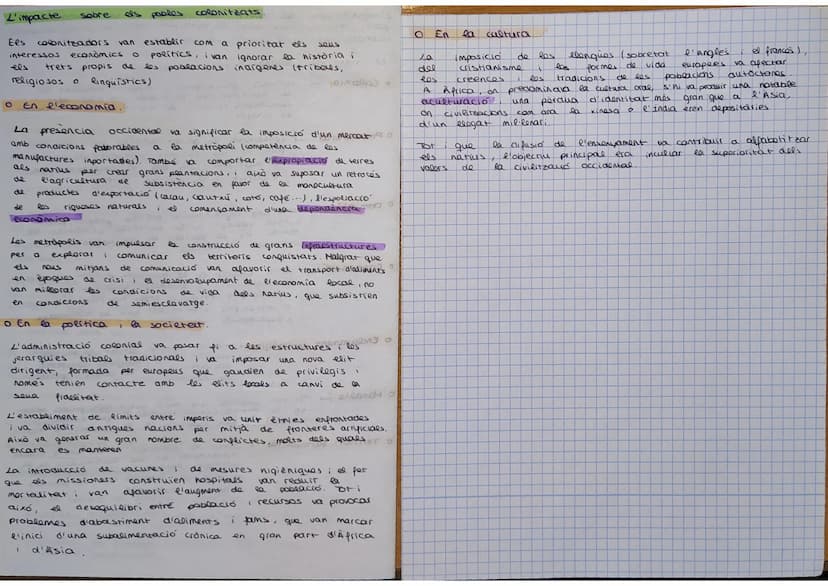 L'impacte sobre els pobles colonitzats
Els colonitzadors van establir com a prioritat els seus
interessos econòmics o polítics, i van ignorar la història i
els trets propis de les poblacions indígenes (tribals,
religiosos o lingüístics)
o En l'economia.
La presència occidental va significar la imposició d'un mercat
amb condicions favorables a la metròpoli (competència de les
manufactures importades). També va comportar l'expropiació de terres
als natius per crear grans plantacions, i això va suposar un retrocés
de l'agricultura de subsistència en favor de la monocultura
de productes d'exportació (cacau, cautxú, cotó, cafè...), l'espoliació
de les riqueses naturals i el començament d'una dependència
econòmica
Les metròpolis van impulsar la construcció de grans infraestructures
per a explorar i comunicar els territoris conquistats. Malgrat que
els nous mitjans de comunicació van afavorir el transport d'aliments
en èpoques de crisi i el desenvolupament de l'economia local, no
van millorar les condicions de vida dels natius, que subsistien
en condicions de semiesclavatge.
o En la política i la societat.
L'administració colonial va posar fi a les estructures i les
jerarquies tribals tradicionals i va imposar una nova elit
dirigent, formada per europeus que gaudien de privilegis i
només tenien contacte amb les elits locals a canvi de la
seua fidelitat.
L'establiment de límits entre imperis va unir ètnies enfrontades
i va dividir antigues nacions per mitjà de fronteres artificials.
Això va generar un gran nombre de conflictes, molts dels quals
encara es mantenen
La introducció de vacunes i de mesures higièniques i el fet
que els missioners construïen hospitals van reduir la
mortalitat i van afavorir l'augment de la població. Tot i
això, el desequilibri entre població i recursos va provocar
problemes d'abastiment d'aliments i fams, que van marcar
l'inici d'una subalimentació crònica en gran part d'Àfrica
i d'Àsia.
o En la cultura
La imposició de les llengües (sobretot l'anglés i el francés),
del cristianisme i les formes de vida europees va afectar
les creences i les tradicions de les poblacions autòctones.
A Àfrica, on predominava la cultura oral, s'hi va produir una notable
aculturació i una pèrdua d'identitat més gran que a l'Àsia,
on civilitzacions com ara la xinesa o l'índia eren depositàries
d'un llegat mil·lenari.
Tot i que la difusió de l'ensenyament va contribuir a alfabetitzar
els natius, l'objectiu principal era inculcar la superioritat dels
valors de la civilització occidental.